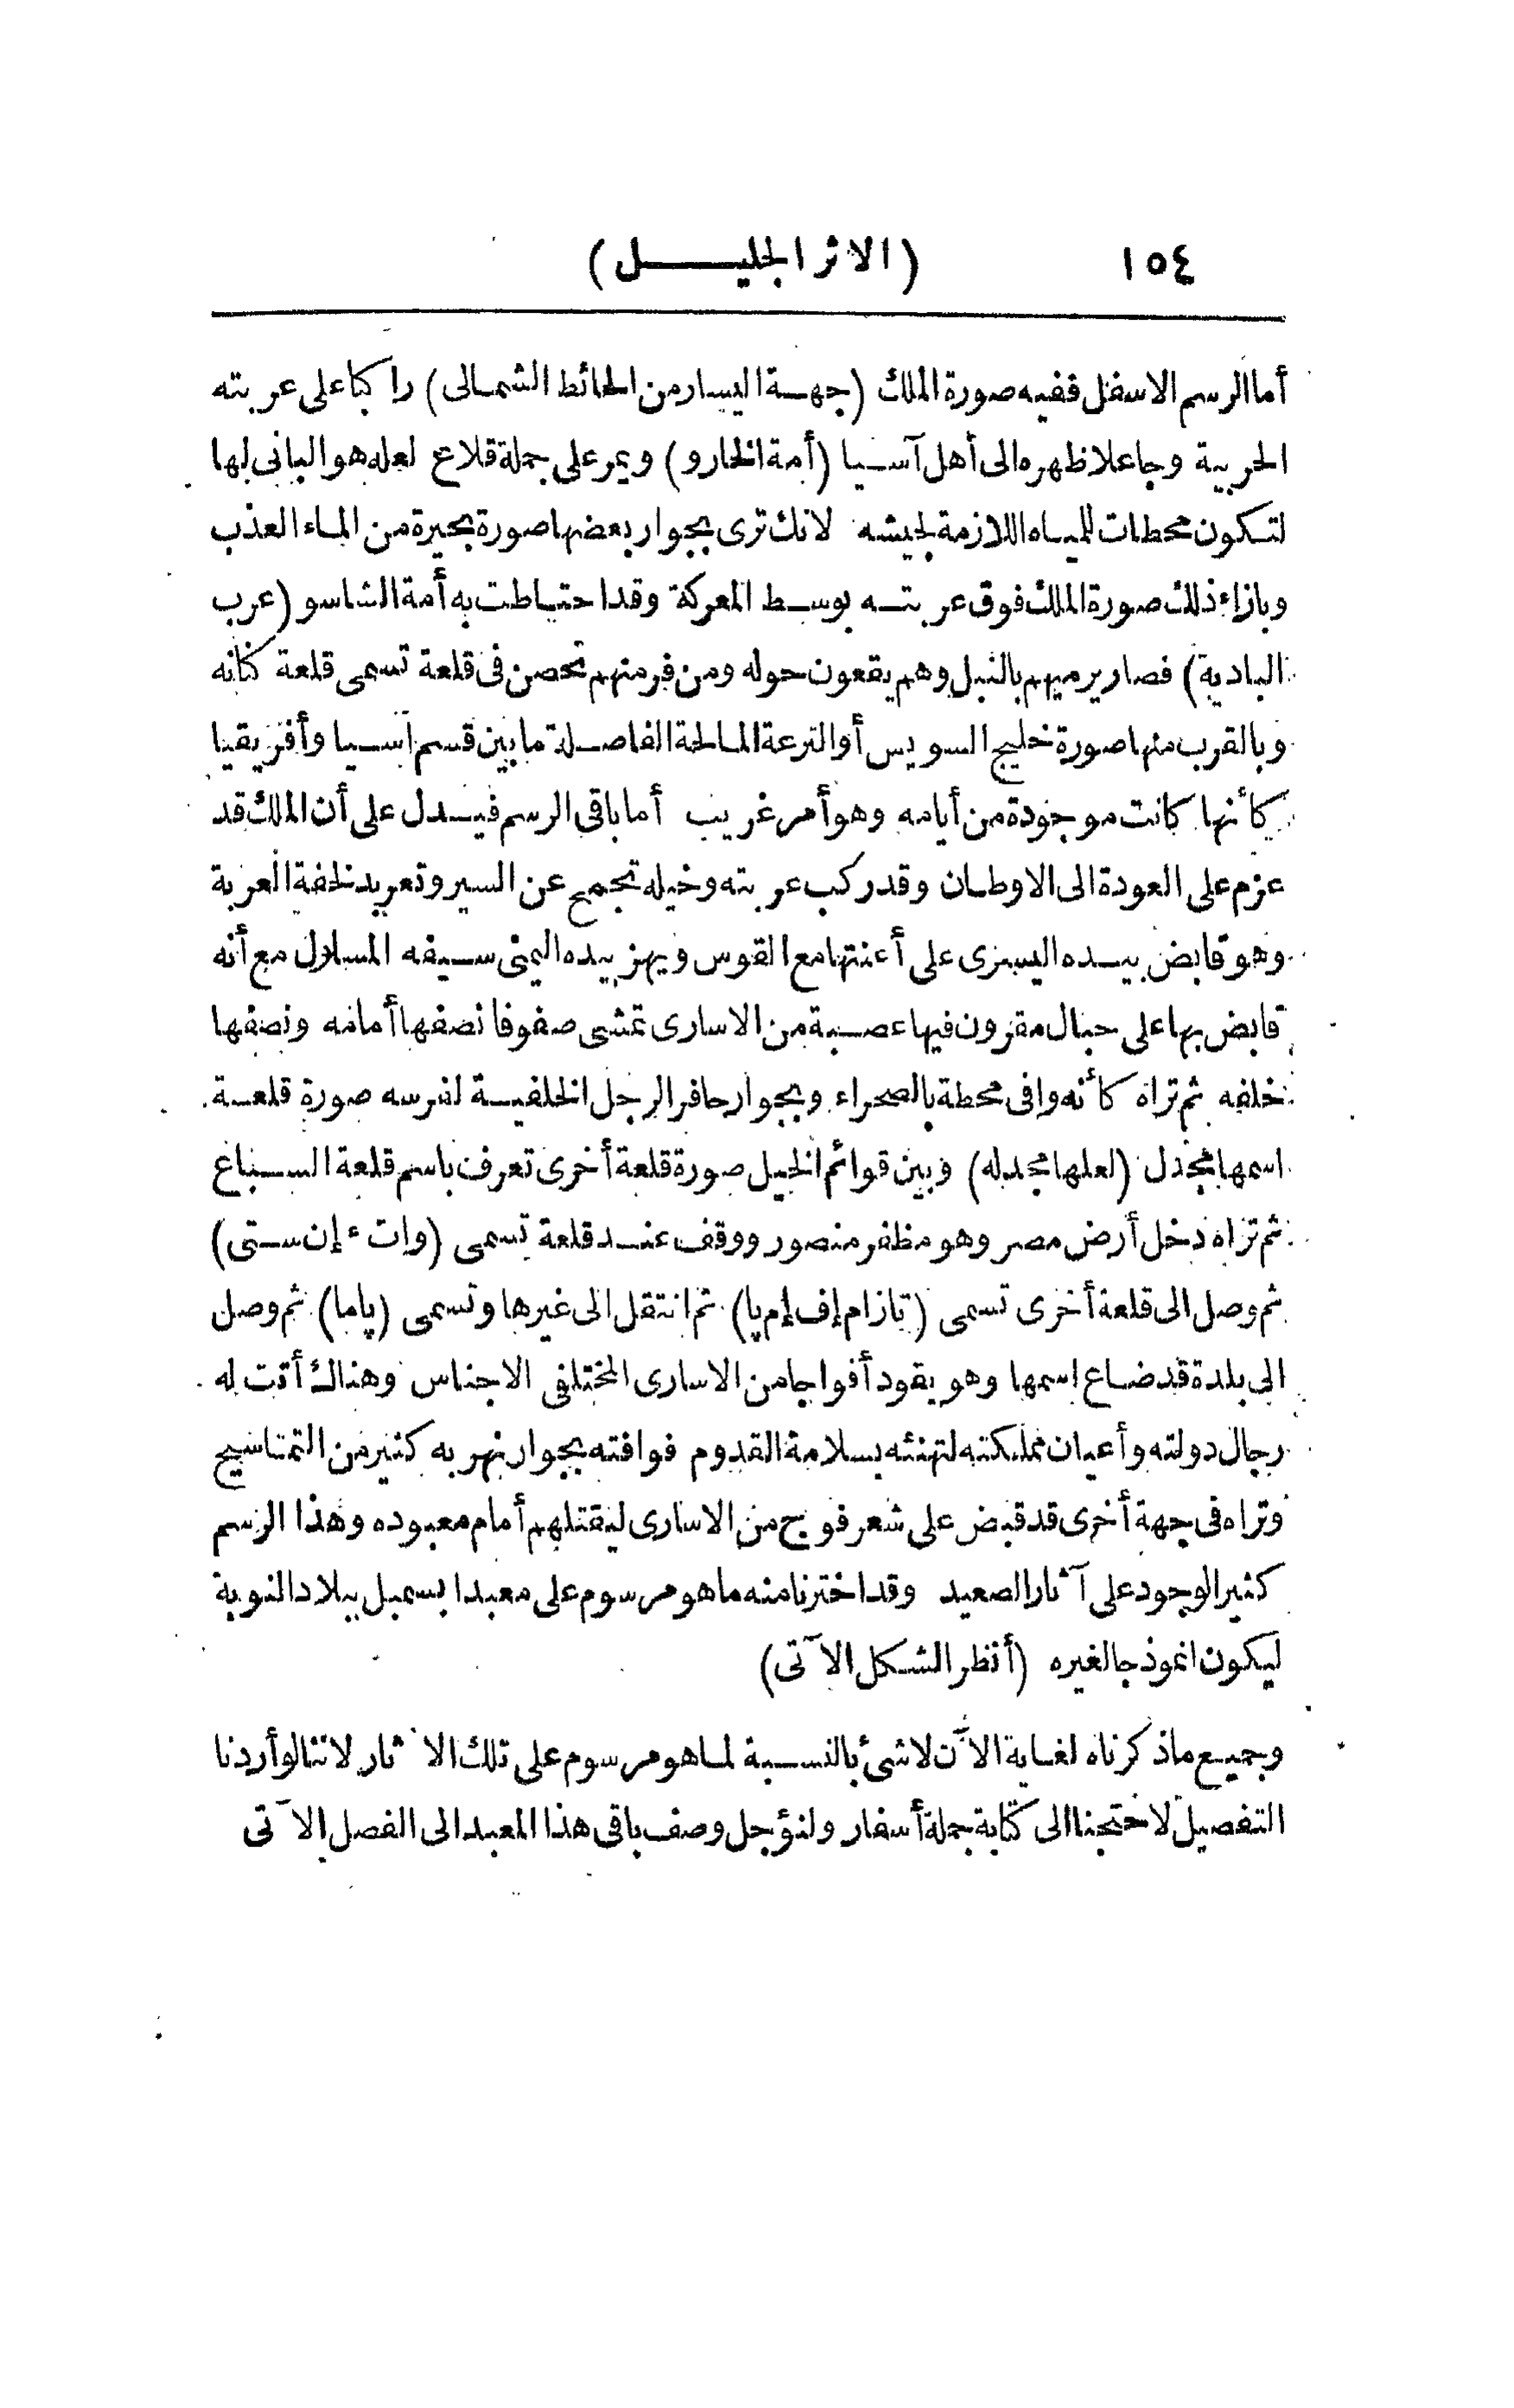 ١٥٤ (الاثر الجليل)
أما الرسم الاسفل ففيه صورة الملك (جهة اليسار من الحائط الشمالى) راكبا على عربته
الحربية وجاعلا ظهره الى أهل آسيا (أمة الخارو) ويمر على جملة قلاع لعله هو البانى لها
لتكون محطات للمياه اللازمة لجيشه لانك ترى بجوار بعضها صورة بحيرة من الماء العذب
وبازاء ذلك صورة الملك فوق عربته بوسط المعركة وقد احتياطت به أمة الشاسو (عرب
البادية) فصار يرميهم بالنبل وهم يقعون حوله ومن فر منهم تحصن فى قلعة تسمى قلعة كنانه
وبالقرب منها صورة خليج السويس أو الترعة المالحة الفاصلة ما بين قسم آسيا وأفريقيا
كأنها كانت موجودة من أيامه وهو أمر غريب أما باقى الرسم فيدل على أن الملك قد
عزم على العودة الى الاوطان وقد ركب عربته وخيله تجمح عن السير وتعربد لخفة العربة
وهو قابض بيده اليسرى على أعنتها مع القوس ويهز بيده اليمنى سيفه المسلول مع أنه
قابض بها على حبال مقرون فيها عصبة من الاسارى تمشى صفوفا نصفها أمامه ونصفها
خلفه ثم تراه كأنه وافى محطة بالصحراء وبجوار حافر الرجل الخلفية لفرسه صورة قلعة
اسمها مجدل (لعلها مجدله) وبين قوائم الخيل صورة قلعة أخرى تعرف باسم قلعة السباع
ثم تراه دخل أرض مصر وهو مظفر منصور ووقف عند قلعة تسمى (وات ء إن ستى)
ثم وصل الى قلعة أخرى تسمى (تازام إف إم پا) ثم انتقل الى غيرها وتسمى (پاما) ثم وصل
الى بلدة قد ضاع اسمها وهو يقود أفواجا من الاسارى المختلفى الاجناس وهناك أتت له
رجال دولته وأعيان مملكته لتهنئه بسلامة القدوم فوافته بجوار نهر به كثير من التماسيح
وتراه فى جهة أخرى قد قبض على شعر فوج من الاسارى ليقتلهم أمام معبوده وهذا الرسم
كثير الوجود على آثار الصعيد وقد اخترنا منه ما هو مرسوم على معبد ابسمبل ببلاد النوبة
ليكون انموذجا لغيره (أنظر الشكل الآتى)
وجميع ما ذكرناه لغاية الآن لا شئ بالنسبة لما هو مرسوم على تلك الآثار لاننا لو أردنا
التفصيل لاحتجنا الى كتابة جملة أسفار ولنؤجل وصف باقى هذا المعبد الى الفصل الآتى